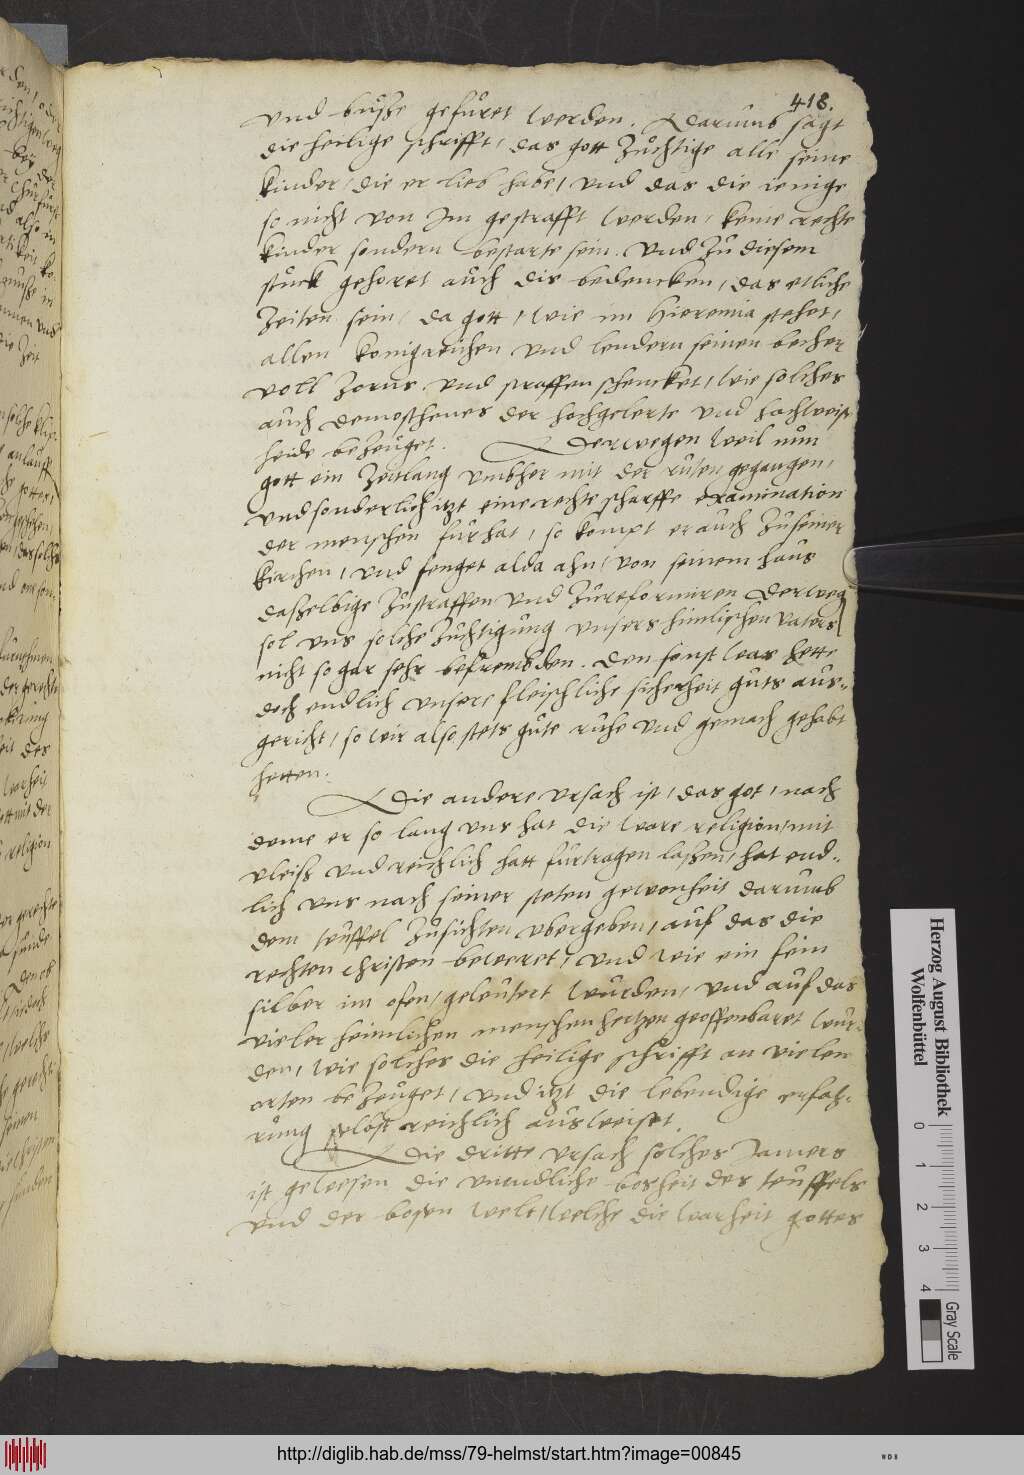 418.
vnd buͦsze gefuͦret werden. Darumb sagt
die heilige schrifft, das gott Zuͦchtige alle seine
kinder, die er lieb habe, vnd das die ienige
so nicht von Im gestrafft werden, keine rechte
kinder sondern bestarte sein. vnd Zu diesem
stuͦck gehoret auch dis bedencken, das etliche
Zeiten sein, da gott, wie im Hieremia stehet,
allen konigreichen vnd lendern seinen becher
voll Zorns vnd straffen schencket, wie solches
auch demosthenes der hochgelerte vnd hochweise
heide beZeuget. Derwegen weil nuͦn
gott ein Zeitlang vmbher mit der ruten gegangen,
vnd sonderlich itzt eine rechte scharffe examination
der menschen fur hat, so kompt er auch Zu seiner
kirchen, vnd fenget alda ahn, von seinem haus
daszelbige Zustraffen vnd Zureformiren Derweg
sol vns solche Zuchtigung vnsers himlischen vaters
nicht so gar sehr befrembden. Den sonst was hette
doch endlich vnsere fleischliche sicherheit guts aus-
gericht, so wir also stets gute ruhe vnd gemach gehabt
hetten.
Die andere vrsach ist, das got, nach
deme er so lang vns hat die ware religion, mit
vleisz vnd reichlich hatt furtragen laszen, hat end-
lich vns nach seiner steten gewonheit darumb
dem teuffel Zusichten vbergeben, auf das die
rechten christen beweret, vnd wie ein fein
silber im ofen, geleutert wurden, vnd auf das
vieler heimlichen menschen hertzen geoffenbaret wur-
den, wie solches die heilige schrifft an vielen
orten beZeuget, vnd itzt die lebendige erfah-
rung selbst reichlich ausweiset.
Die dritte vrsach solches Jamers
ist gewesen die vnendliche bosheit des teuffels
vnd der bosen welt, welche die warheit gottes
Herzog August Bibliothek
Wolfenbüttel
0 1 2 3 4
Gray Scale
http://diglib.hab.de/mss/79-helmst/start.htm?image=00845